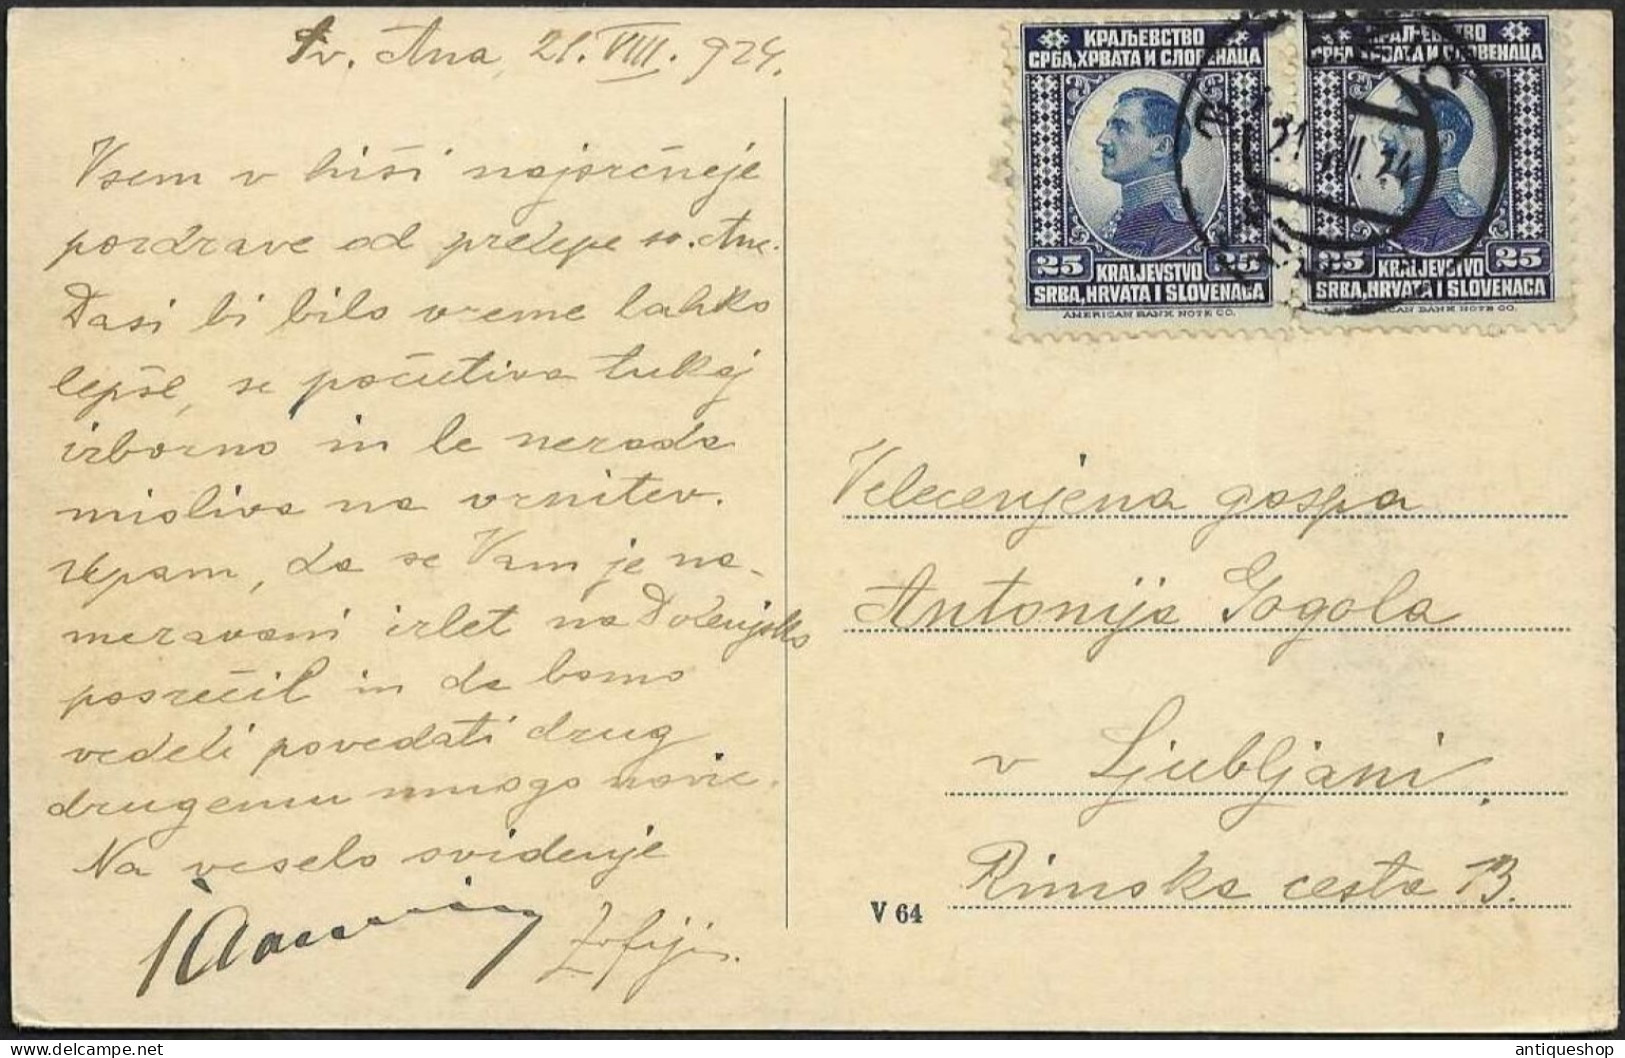 Sv. Ana, 21. VIII. 924.
Vsem v hiši najsrčneje
pozdrave od prelepe sv. Ane.
Dasi bi bilo vreme lahko
lepše, se počutiva tukaj
izborno in le nerada
misliva na vrnitev.
Upam, da se Vam je na-
meravani izlet na Dolenjsko
posrečil in da bomo
vedeli povedati drug
drugemu mnogo novic.
Na veselo svidenje
Zofija.
КРАЉЕВСТВО
СРБА, ХРВАТА И СЛОВЕНАЦА
25 KRALJEVSTVO 25
SRBA, HRVATA I SLOVENACA
AMERICAN BANK NOTE CO.
КРАЉЕВСТВО
СРБА, ХРВАТА И СЛОВЕНАЦА
25 KRALJEVSTVO 25
SRBA, HRVATA I SLOVENACA
AMERICAN BANK NOTE CO.
21. VIII. 24
Velecenjena gospa
Antonija Gogola
v Ljubljani,
Rimska cesta 13.
V 64
antiqueshop